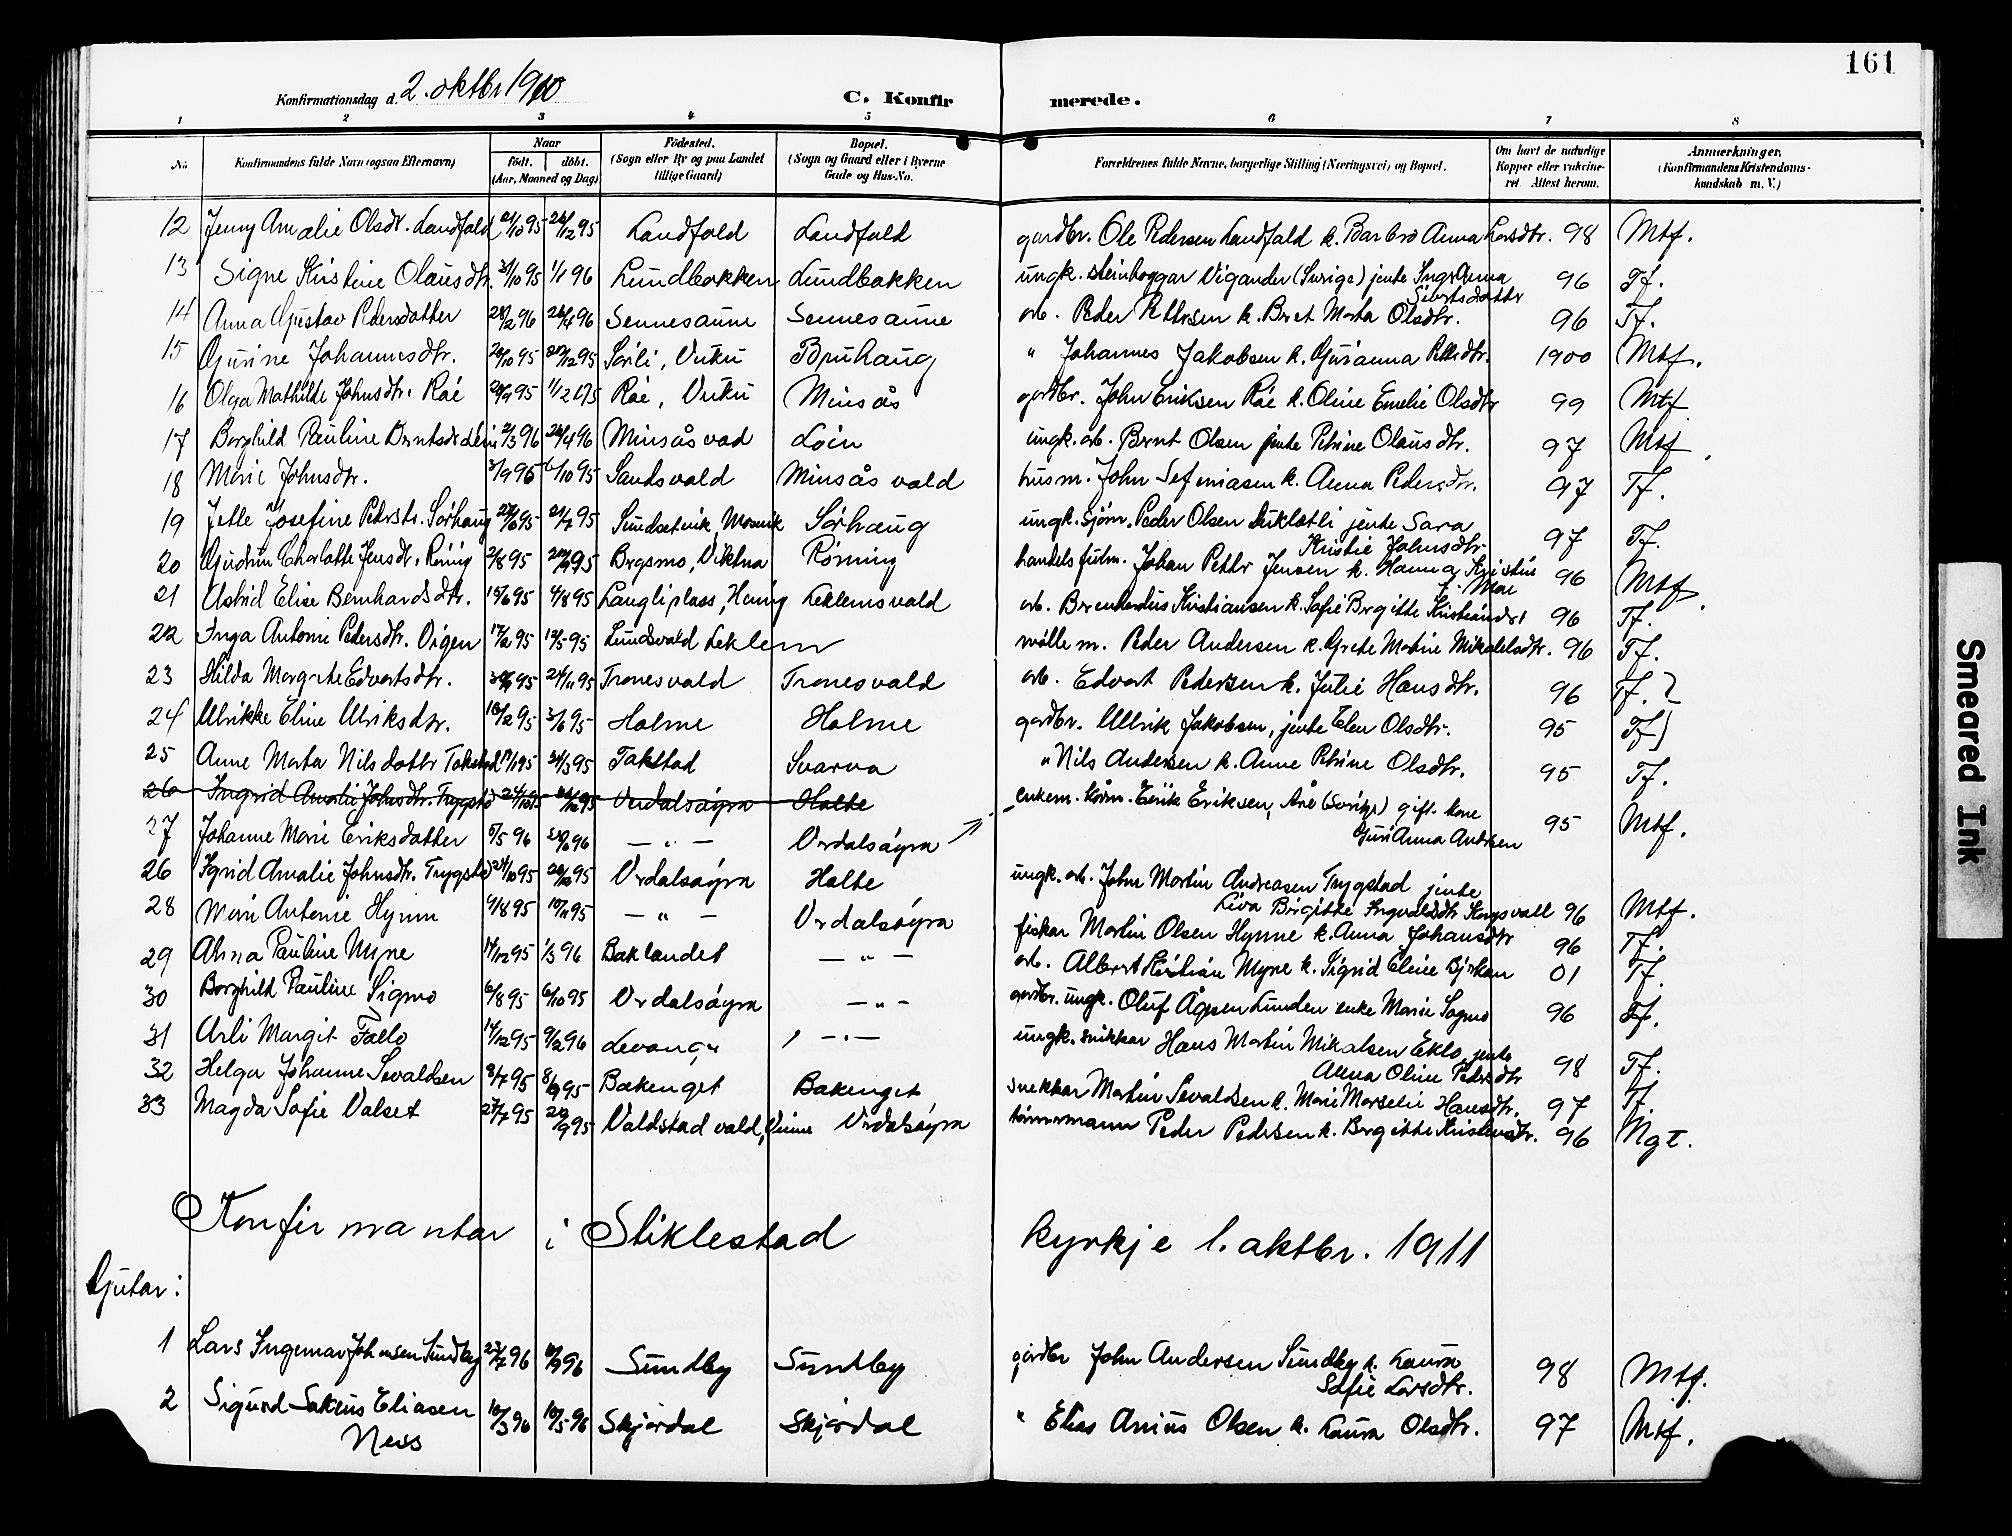 161
Konfirmationsdag d. 2. oktbr 1910
C. Konfir merede.
1 2 3 4 5 6 7 8
No. Konfirmandens fulde Navn (ogsaa Efternavn) Naar født. døbt. (Aar, Maaned og Dag) Fødested. (Sogn eller By og paa Landet tillige Gaard) Bopæl. (Sogn og Gaard eller i Byerne Gade og Hus-No. Forældrenes fulde Navne, borgerlige Stilling (Næringsvei) og Bopæl. Om havt de naturlige Kopper eller vakcineret. Attest herom. Anmærkninger. (Konfirmandens Kristendomskundskab m. V.)
12 Jenny Amalie Olsdr. Landfald 21/10 95 26/12 95 Landfald Landfald gardbr. Ole Pedersen Landfald k. Barbro Anna Larsdtr. 98 Mtf.
13 Signe Kristine Olausdtr. 31/10 95 1/1 96 Lundbakken Lundbakken ungk. steinhoggar Vigander (Sverige) jente Inga Anna Sivertsdatter 96 Tf.
14 Anna Gustav Pedersdatter 28/2 96 26/4 96 Sennesaune Sennesaune arb. Peder Pettersen k. Beret Marta Olsdtr. 96 Tf.
15 Gurine Johannesdtr. 28/10 95 Sørli, Vuku Bruhaug " Johannes Jakobsen k. Gurianna Petersdtr. 1900 Mtf.
16 Olga Mathilde Johnsdtr. Råe Råe, Vuku Minsås gardbr. John Eriksen Råe k. Oline Emelie Olsdtr 99 Mtf
17 Borghild Pauline Berntsdr. Løin 21/3 96 26/4 96 Minsås vad Løin ungk. arb. Bernt Olsen jente Petrine Olausdtr. 97 Mtf.
18 Marie Johnsdtr. 3/9 95 6/10 95 Sandsvald Minsås vald husm. John Sefeniasen k. Anna Pedersdtr. 97 Tf.
19 Jelle Josefine Pedrsdtr. Sørhaug 21/7 95 Sundsetvik, Mosvik Sørhaug ungk. sjøm. Peder Olsen jente Sara Kristie Johnsdtr. 97 Tf.
20 Gudrun Charlotte Jensdtr. Röning 2/8 95 Brgsmo, Viktna Rönning handels fulm. Johan Petter Jensen k. Hanna Kristin f. Moe 96 Mtf.
21 Astrid Elise Bernhardsdtr. 4/8 95 Langliplass, Hening Leklemsvald arb. Berenhardus Kristiansen k. Sofie Birgitte Kristiansdtr 96 Tf.
22 Inga Antonie Pedersdtr. Vigen 17/2 95 Lundsvald Leklem mølle m. Peder Andersen k. Grete Martine Mikalelsdtr. 96 Tf.
23 Hilda Margrete Edvartsdtr. 24/11 95 Tronesvald Tronesvald arb. Edvart Pedersen k. Julie Hansdtr. 96 Tf.
24 Ulrikke Eline Ulriksdtr. 18/2 95 3/6 95 Holme Holme gardbr. Ullrik Jakobsen, jente Elen Olsdtr. 95 Tf
25 Anne Marta Nilsdatter Takstad 31/3 95 Takstad Svarva " Nils Andersen k. Anne Petrine Olsdtr. 95 Tf.
26 Ingrid Amalie Johnsdtr. Trygstad 24/10 95 Verdalsøyra Halte
27 Johanne Marie Eriksdatter 5/5 96 — " — Verdalsøyra enkem. Eirik Eriksen, Åre (Sverige) gift kone Guri Anna Andersen 95 Mtf.
26 Igrid Amalie Johnsdtr. Trygstad 24/10 95 Verdalsøyra Halte ungk. arb. John Martin Andreasen Trygstad jente Liva Birgitte Ingvaldsdtr Kongsvoll 96 Mtf.
28 Mari Antonie Hynne 9/8 95 10/11 95 — " — Verdalsøyra fiskar Martin Olsen Hynne k. Anna Johansdtr 96 Tf.
29 Anna Pauline Myne 14/12 95 1/3 96 Baklandet — " — arb. Albert Kristian Myne k. Sigrid Eline Bjerkan 01 Tf.
30 Borghild Pauline Sigmo 6/8 95 6/10 95 Verdalsøyra — " — gardbr. ungk. Oluf Ågesen Lunden enke Marie Sogmo 96 Tf.
31 Arli Margit Fallo 14/12 95 9/2 96 Levanger — " — ungk. snikkar Hans Martin Mikalsen Eklo jente Anna Oline Pedersdtr 98 Tf.
32 Helga Johanne Sevaldsen 8/7 95 8/9 95 Bakenget Bakenget snekkar Martin Sevaldsen k. Marie Marselie Hansdtr. 97 Tf.
33 Magda Sofie Valset 27/7 95 29/9 95 Valdstad vald, Vinne Verdalsøyra tømmermann Peder Pedersen k. Birgitte Kristensdtr. 96 Mgt.
Konfirmantar i Stiklestad kyrkje 1. oktbr. 1911
Gjutar:
1 Lars Ingemar Johnsen Sundby 23/7 96 Sundby Sundby gardbr John Andersen Sundby k. Laura Sofie Larsdtr. 98 Mtf.
2 Sigurd Sakeus Eliasen Ness 10/3 96 10/5 96 Skjørdal Skjørdal " Elias Anius Olsen k. Laura Olsdtr. 97 Mtf.
Smeared Ink